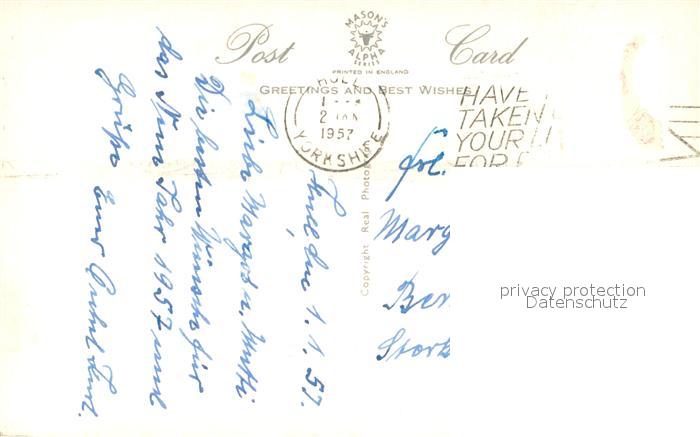 Post Card
MASON'S
ALPHA
SERIES
PRINTED IN ENGLAND
GREETINGS AND BEST WISHES
HULL
1
2 JAN
1957
YORKSHIRE
HAVE
TAKEN
YOUR LI
FOR
Copyright Real Photograph
Hull den 1.1.57.
Liebe Margot u. Mutti
Die besten Wünsche für
das Neue Jahr 1957 und
Grüße Euer Onkel Kurt.
Frl.
Marg
Ber
Stork
privacy protection
Datenschutz